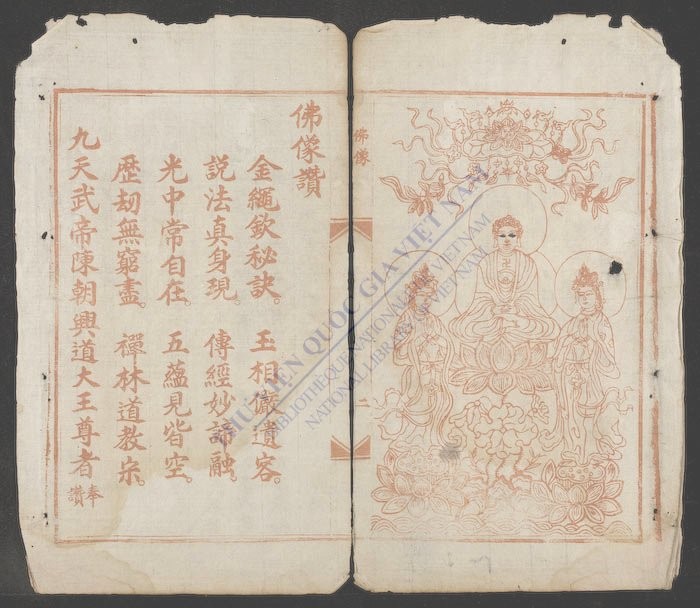 佛像
二
佛像讚
金繩欽秘訣。玉相儼遺容。
說法真身現。傳經妙諦融。
光中常自在。五蘊見皆空。
歴刧無窮盡。禪林道教宗。
九天武帝陳朝興道大王尊者奉讚
THƯ VIỆN QUỐC GIA VIỆT NAM
BIBLIOTHÈQUE NATIONALE DU VIETNAM
NATIONAL LIBRARY OF VIETNAM